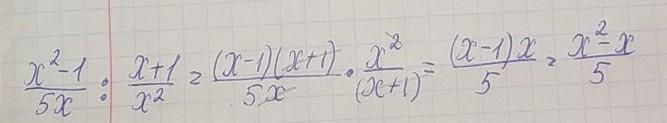 (x²-1)/(5x) : (x+1)/(x²) = ((x-1)(x+1))/(5x) · (x²)/((x+1)) = ((x-1)x)/5 = (x²-x)/5